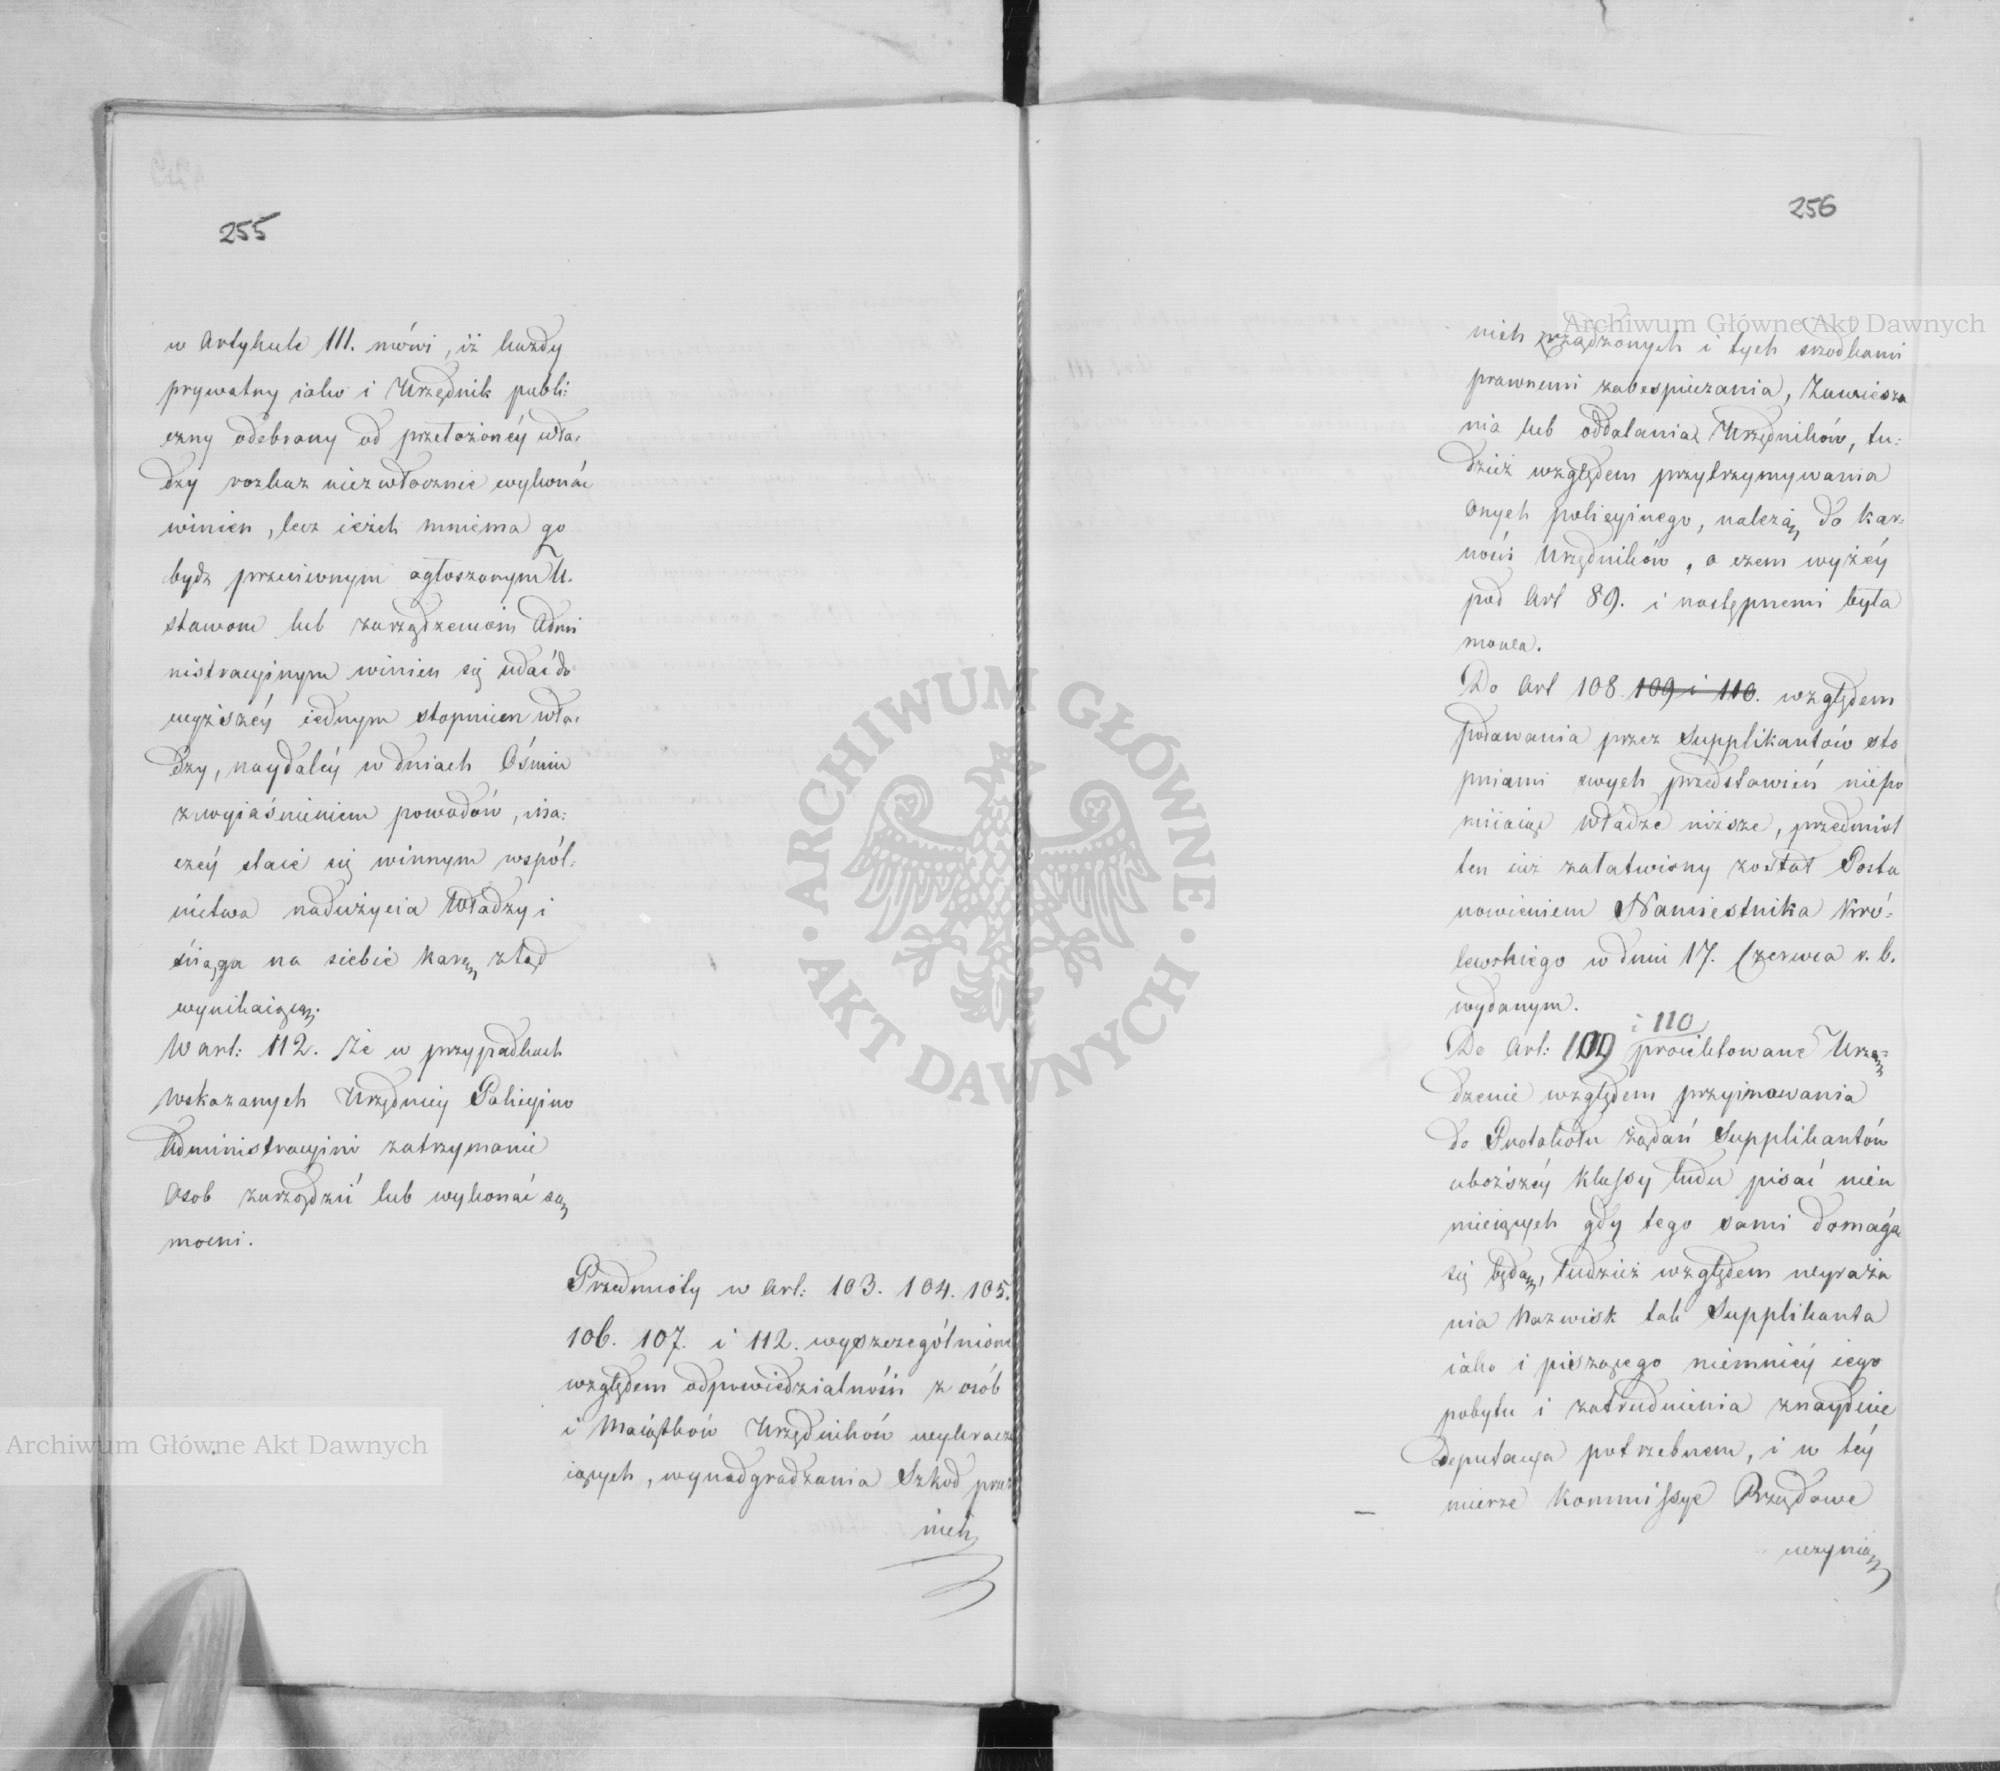 255
w Artykule 111. mówi, iż każdy
prywatny iako i Urzędnik publi:
czny odebrany od przełożonéy wła:
dzy rozkaz niezwłocznie wykonać
winien, lecz ieżeli mniema go
bydź przeciwnym ogłoszonym U:
stawom lub zarządzeniom Admi
nistracyinym winien się udać do
wyższéy iednym stopniem wła:
dzy, naydaléy w dniach Ośmiu
z wyiaśnieniem powodów, ina:
czéy staie się winnym wspól:
nictwa nadużycia Władzy i
ściąga na siebie karę ztąd
wynikaiącą.
W art: 112. Że w przypadkach
wskazanych Urzędnicy Policyino
Administracyini zatrzymanie
Osob zarządzić lub wykonać są
mocni.
Przedmioty w Art: 103. 104. 105.
106. 107. i 112. wyszczególnione
względem odpowiedzialności z osób
i Maiątków Urzędników wykracza
iących, wynadgradzania Szkod przez
nich
256
nich zrządzonych i tych srzodkami
prawnemi zabespieczania, Zawiesza
nia lub oddalania Urzędników, tu:
dzież względem przytrzymywania
Onych policyinego, należą do Kar:
ności Urzędników, o czem wyżéy
pod Art 89. i następnemi była
mowa.
Do Art 108. 109 i 110. względem
podawania przez Supplikantów sto
pniami swych przedstawień niepo
miiaiąc Władze niższe, przedmiot
ten iuż załatwiony został Posta
nowieniem Namiestnika Kró:
lewskiego w dniu 17. Czerwca r. b.
wydanym.
i 110
Do Art: 109 proiektowane Urzą:
dzenie względem przyimowania
do Protokołu żądań Supplikantów
uboższéy klassy ludu pisać nieu
mieiących gdy tego sami domagać
się będą, tudzież względem wyraża
nia Nazwisk tak Supplikanta
iako i piszącego niemniéy iego
pobytu i zatrudnienia znayduie
Deputacya potrzebnem, i w téy
mierze Kommissye Rządowe
uczynią
Archiwum Główne Akt Dawnych
Archiwum Główne Akt Dawnych
ARCHIWUM GŁÓWNE
· AKT DAWNYCH ·